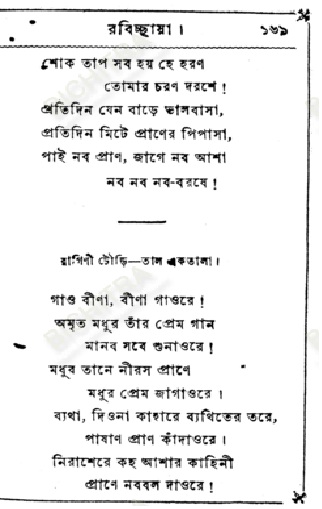 রবিচ্ছায়া। ১৬৯
শোক তাপ সব হয় হে হরণ
তোমার চরণ দরশে!
প্রতিদিন যেন বাড়ে ভালবাসা,
প্রতিদিন মিটে প্রাণের পিপাসা,
পাই নব প্রাণ, জাগে নব আশা
নব নব নব-বরষে!
রাগিণী টৌড়ি—তাল একতালা।
গাও বীণা, বীণা গাওরে!
অমৃত মধুর তাঁর প্রেম গান
মানব সবে শুনাওরে!
মধুর তানে নীরস প্রাণে
মধুর প্রেম জাগাওরে।
ব্যথা, দিওনা কাহারে ব্যথিতের তরে,
পাষাণ প্রাণ কাঁদাওরে।
নিরাশেরে কহ আশার কাহিনী
প্রাণে নববল দাওরে!